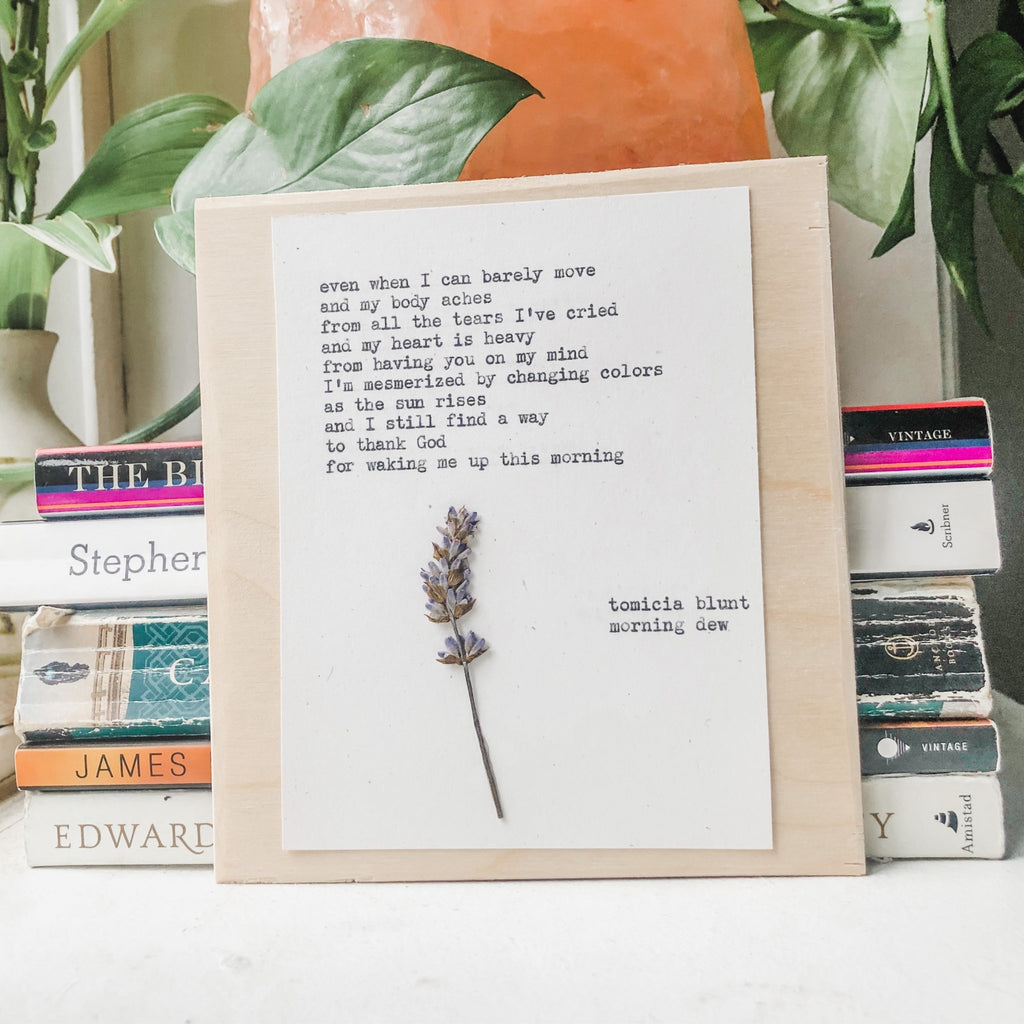 even when I can barely move
and my body aches
from all the tears I've cried
and my heart is heavy
from having you on my mind
I'm mesmerized by changing colors
as the sun rises
and I still find a way
to thank God
for waking me up this morning
tomicia blunt
morning dew
THE BL
VINTAGE
Stephen
Scribner
CA
ANCHOR BOOKS
JAMES
VINTAGE
EDWARD
Y
Amistad